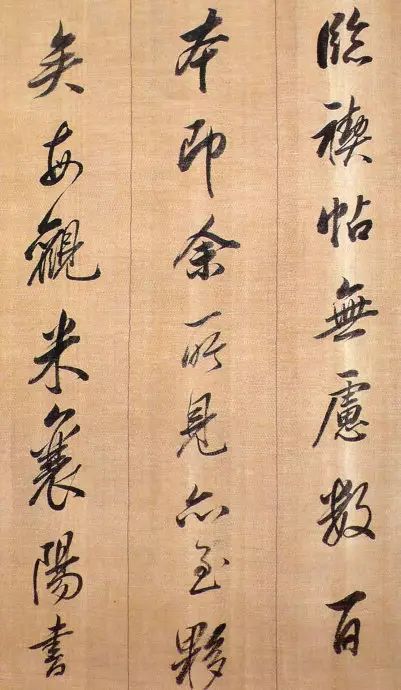 臨禊帖無慮數百
本即余所見亦至夥
矣每觀米襄陽書